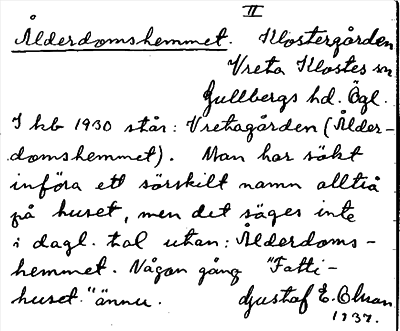 II
Ålderdomshemmet. Klostergården
Vreta Klosters sn
Gullbergs hd. Ögl.
I hb 1930 står: Vretagården (Ålder-
domshemmet). Man har sökt
införa ett särskilt namn alltså
på huset, men det säges inte
i dagl. tal utan: Ålderdoms-
hemmet. Någon gång "Fatti-
huset" ännu. Gustaf E. Olsson
1937.